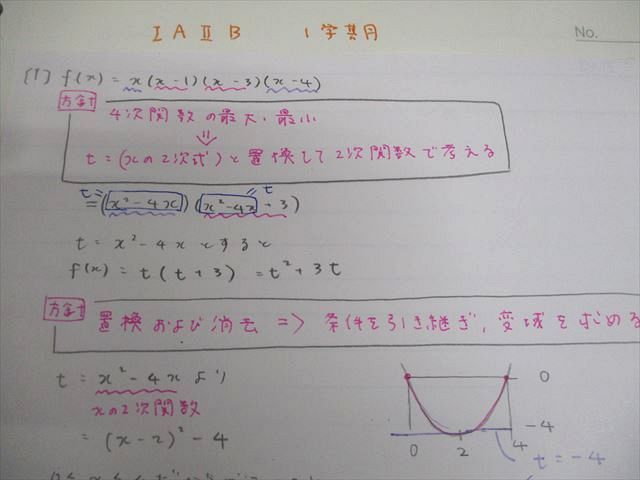 ⅠAⅡB 1学期 No.
(1) f(x) = x(x-1)(x-3)(x-4)
方針
4次関数の最大・最小
⇓
t=(xの2次式)と置換して2次関数で考える
t= =t
=(x²-4x)(x²-4x+3)
t = x²-4x とすると
f(x) = t(t+3) = t²+3t
方針
置換および消去 => 条件を引き継ぎ,変域を求める
t = x²-4x より
xの2次関数
= (x-2)²-4
0
-4
0 2 4
t=-4